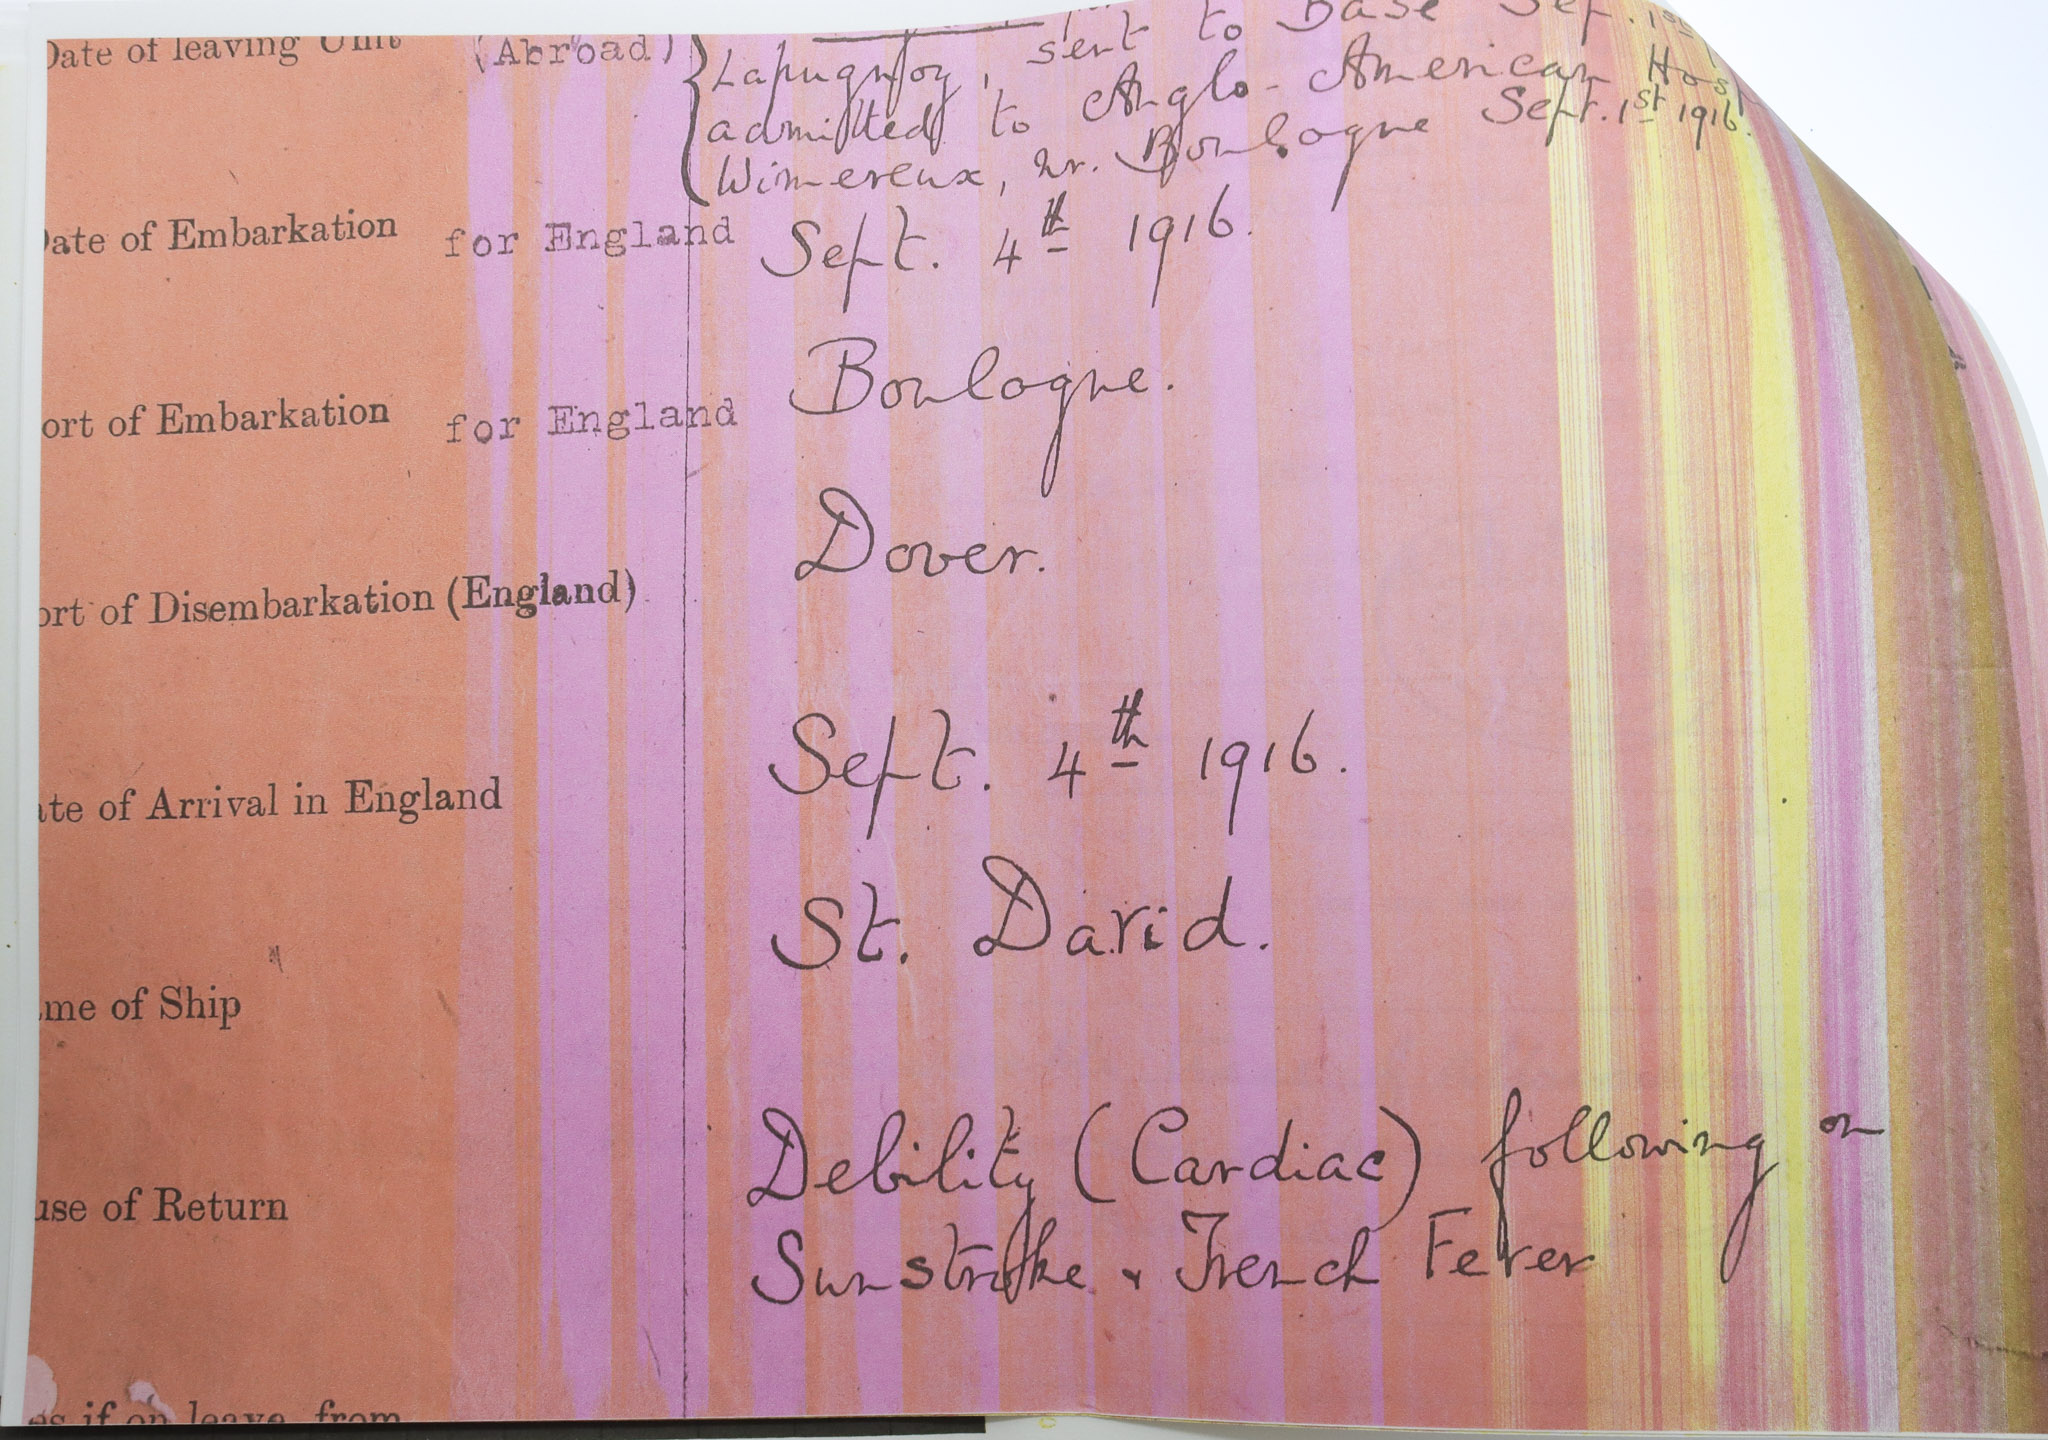 Date of leaving Unit (Abroad)
Lapugnoy, sent to Base Sep. 1st
admitted to Anglo-American Hosp
Wimereux, nr. Boulogne Sept. 1st 1916.
Date of Embarkation for England Sept. 4th 1916.
ort of Embarkation for England Boulogne.
ort of Disembarkation (England) Dover.
ate of Arrival in England Sept. 4th 1916.
me of Ship St. David.
use of Return Debility (Cardiac) following on
Sunstroke & Trench Fever
es if on leave from